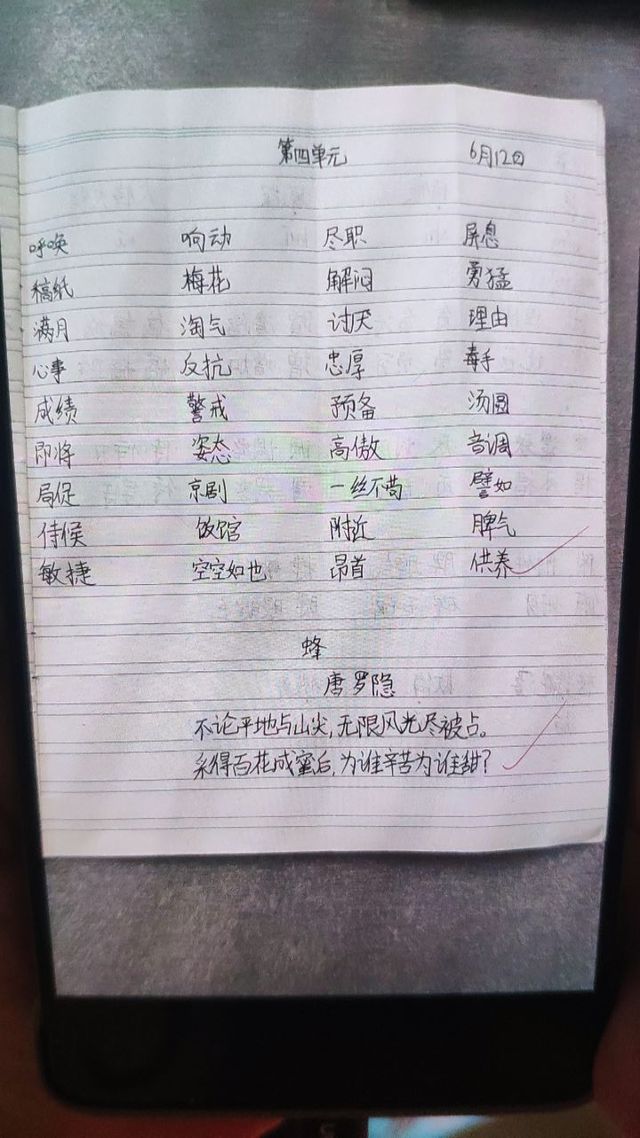 第四单元 6月12日
呼唤 响动 尽职 屏息
稿纸 梅花 解闷 勇猛
满月 淘气 讨厌 理由
心事 反抗 忠厚 毒手
成绩 警戒 预备 汤圆
即将 姿态 高傲 音调
局促 京剧 一丝不苟 譬如
侍候 饭馆 附近 脾气
敏捷 空空如也 昂首 供养
蜂
唐罗隐
不论平地与山尖,无限风光尽被占。
采得百花成蜜后,为谁辛苦为谁甜?